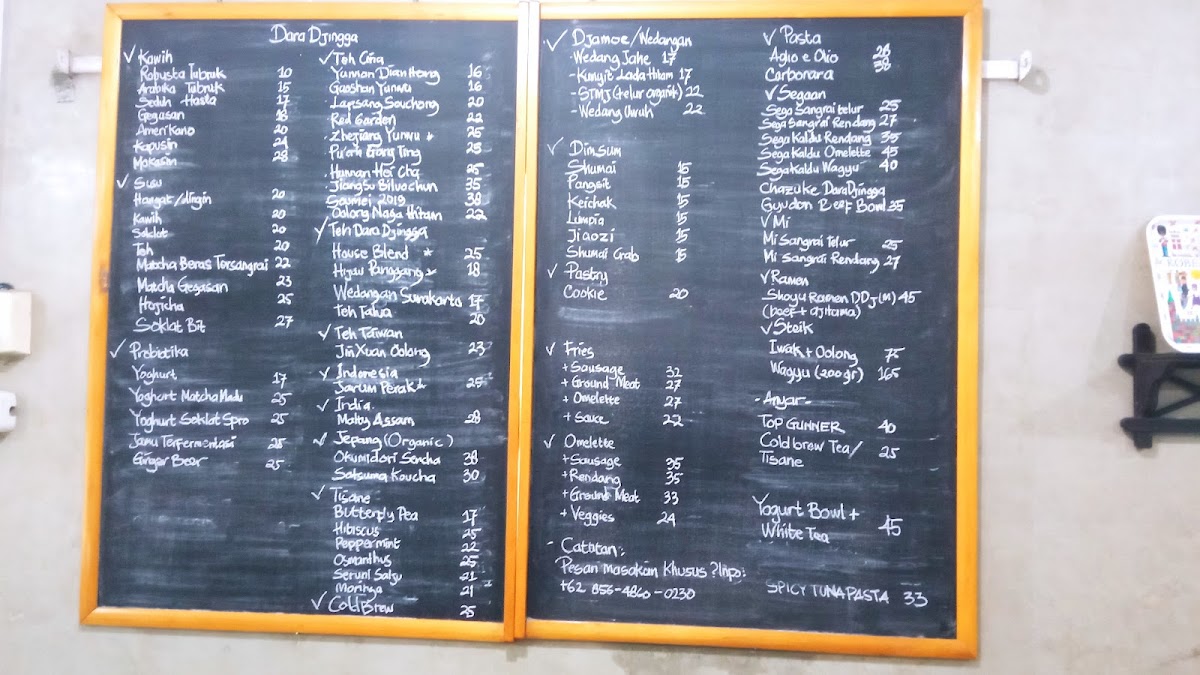 Dara Djingga
✓ Kawih
Robusta Tubruk 10
Arabika Tubruk 15
Seduh Hasta 17
Gegasan 18
Amerikano 20
Kapusin 24
Mokasin 28
✓ Susu
Hangat/dingin 20
Kawih 20
Soklat 20
Teh 20
Matcha Beras Tersangrai 22
Matcha Gegasan 23
Hojicha 25
Soklat Bit 27
✓ Probiotika
Yoghurt 17
Yoghurt Matcha Madu 25
Yoghurt Soklat Spro 25
Jamu Terfermentasi 25
Ginger Beer 25
✓ Teh Cina
Yunnan Dian Hong 16
Gaoshan Yunwu 16
Lapsang Souchong 20
Red Garden 22
Zhejiang Yunwu * 25
Pu'erh Gong Ting 28
Hunnan Hei Cha 25
Jiangsu Biluochun 35
Soumei 2019 38
Oolong Naga Hitam 22
✓ Teh Dara Djingga
House Blend * 25
Hijau Panggang 18
Wedangan Surokarto 17
Teh Talua 20
✓ Teh Taiwan
Jin Xuan Oolong 23
✓ Indonesia
Jarum Perak * 25
✓ India
Malty Assam 28
✓ Jepang (Organic)
Okumidori Sencha 38
Satsuma Koucha 30
✓ Tisane
Butterfly Pea 17
Hibiscus 25
Peppermint 22
Osmanthus 25
Seruni Salju 21
Moringa 21
✓ Cold Brew 25
✓ Djamoe/Wedangan
- Wedang Jahe 17
- Kunyit Lada Hitam 17
- STMJ (telur organik) 22
- Wedang Uwuh 22
✓ Dimsum
Shumai 15
Pangsit 15
Keichak 15
Lumpia 15
Jiaozi 15
Shumai Crab 15
✓ Pastry
Cookie 20
✓ Fries
+ Sausage 32
+ Ground Meat 27
+ Omelette 27
+ Sauce 22
✓ Omelette
+ Sausage 35
+ Rendang 35
+ Ground Meat 33
+ Veggies 24
- Catatan:
Pesan masakan khusus? Info:
+62 856-4860-0230
✓ Pasta
Aglio e Olio 28
Carbonara 38
✓ Segaan
Sega Sangrai telur 25
Sega Sangrai Rendang 27
Sega Kaldu Rendang 35
Sega Kaldu Omelette 45
Sega Kaldu Wagyu 40
Chazuke Dara Djingga
Gyudon Beef Bowl 35
✓ Mi
Mi Sangrai telur 25
Mi sangrai Rendang 27
✓ Ramen
Shoyu Ramen DDj (M) 45
(beef + ajitama)
✓ Steik
Iwak + Oolong 75
Wagyu (200 gr) 165
- Anyar -
TOP GUNNER 40
Cold brew Tea/ 25
Tisane
Yogurt Bowl + 45
White Tea
SPICY TUNA PASTA 33